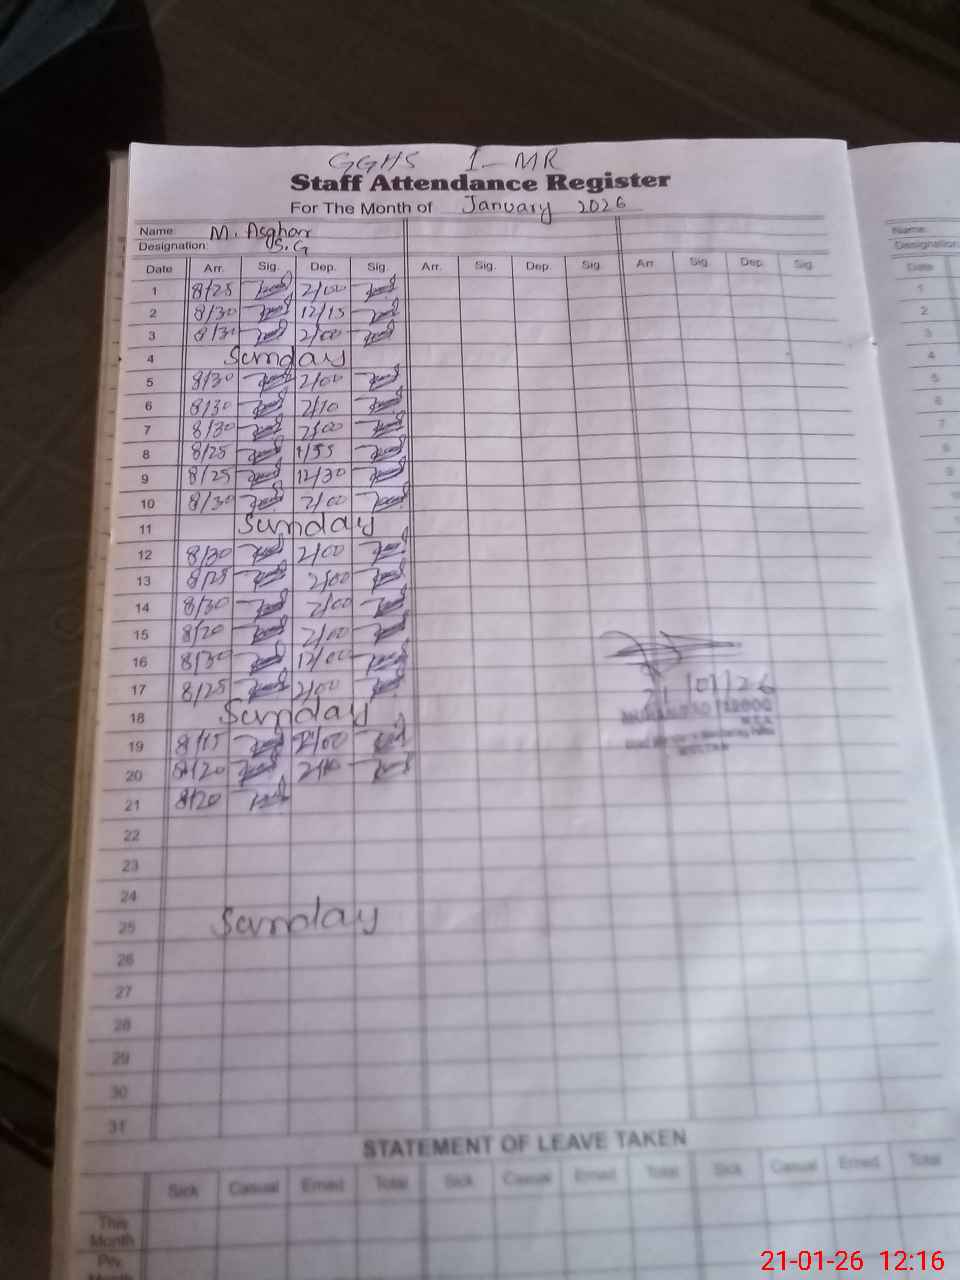 GGHS 1-MR
Staff Attendance Register
For The Month of January 2026
Name: M. Asghar
Designation: S.G
Date Arr. Sig. Dep. Sig. Arr. Sig. Dep. Sig. Arr. Sig. Dep. Sig.
1 8/25 2/00
2 8/30 12/15
3 8/30 2/00
4 Sunday
5 8/30 2/00
6 8/30 2/10
7 8/30 2/00
8 8/25 1/55
9 8/25 12/30
10 8/30 2/00
11 Sunday
12 8/30 2/00
13 8/25 2/00
14 8/30 2/00
15 8/20 2/00
16 8/30 12/00
17 8/25 2/00
18 Sunday
19 8/15 2/00
20 8/20 2/10
21 8/20
22
23
24
25 Sunday
26
27
28
29
30
31
21/01/26
STATEMENT OF LEAVE TAKEN
Sick Casual Erned Total Sick Casual Erned Total Sick Casual Erned Total
This Month
Prv. Month
Name:
Designation:
Date
1
2
3
4
5
6
7
8
9
21-01-26 12:16